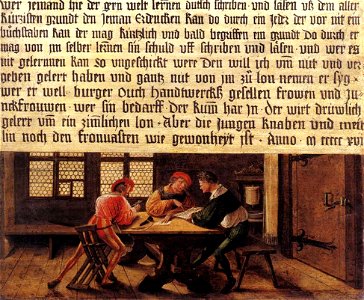 wer jemand hie der gern welt lernen dütsch schriben und läsen uß dem aller
kürtzisten grundt den jeman erdencken kan do durch ein jeder der vor nit ein
büchstaben kan der mag kürtzlich und bald begriffen ein grundt do durch er
mag von jm selber lernen sin schuld uff schriben und läsen und wer es
nit gelernnen kan so ungeschickt were den will ich vm̄ nüt und ver
geben gelert haben und gantz nüt von jm zů lon nemen er syg
wer er well burger ouch handtwerckß gesellen frowen und ju
nckfrouwen wer sin bedarff der kum̄ har jn der wirt drüwlich
gelert vm̄ ein zimlichen lon · aber die jungen knaben und meit
lin noch den fronuasten wie gewonheyt ist · Anno · m ccccc xvi